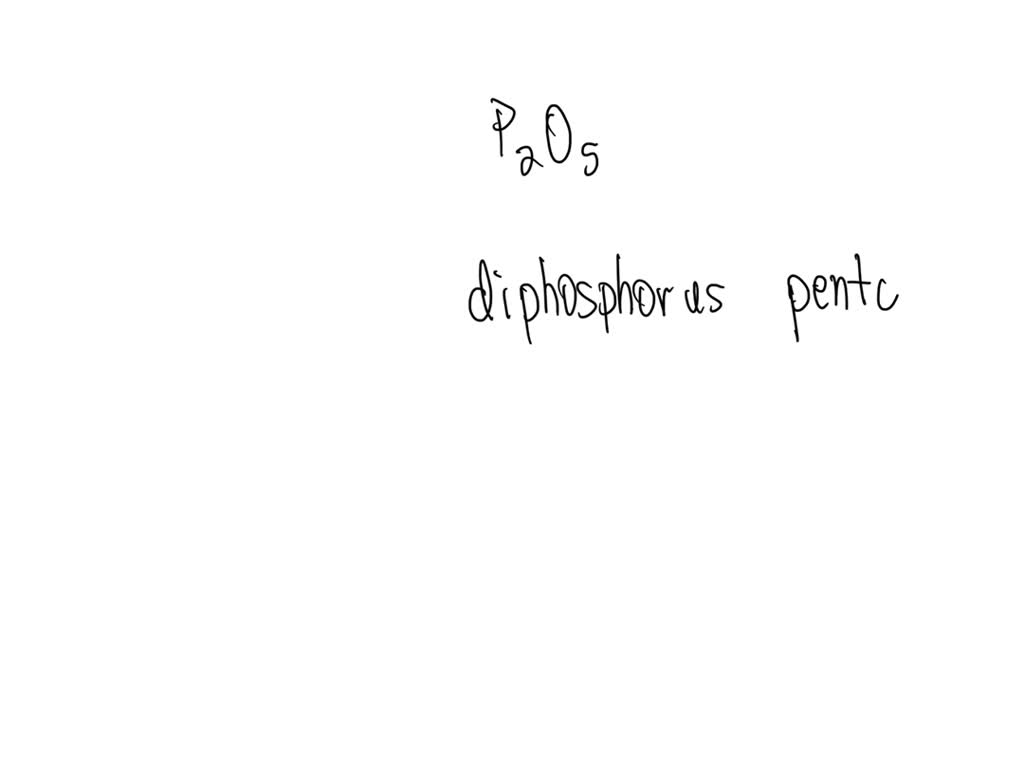 P₂O₅
diphosphorus pentc